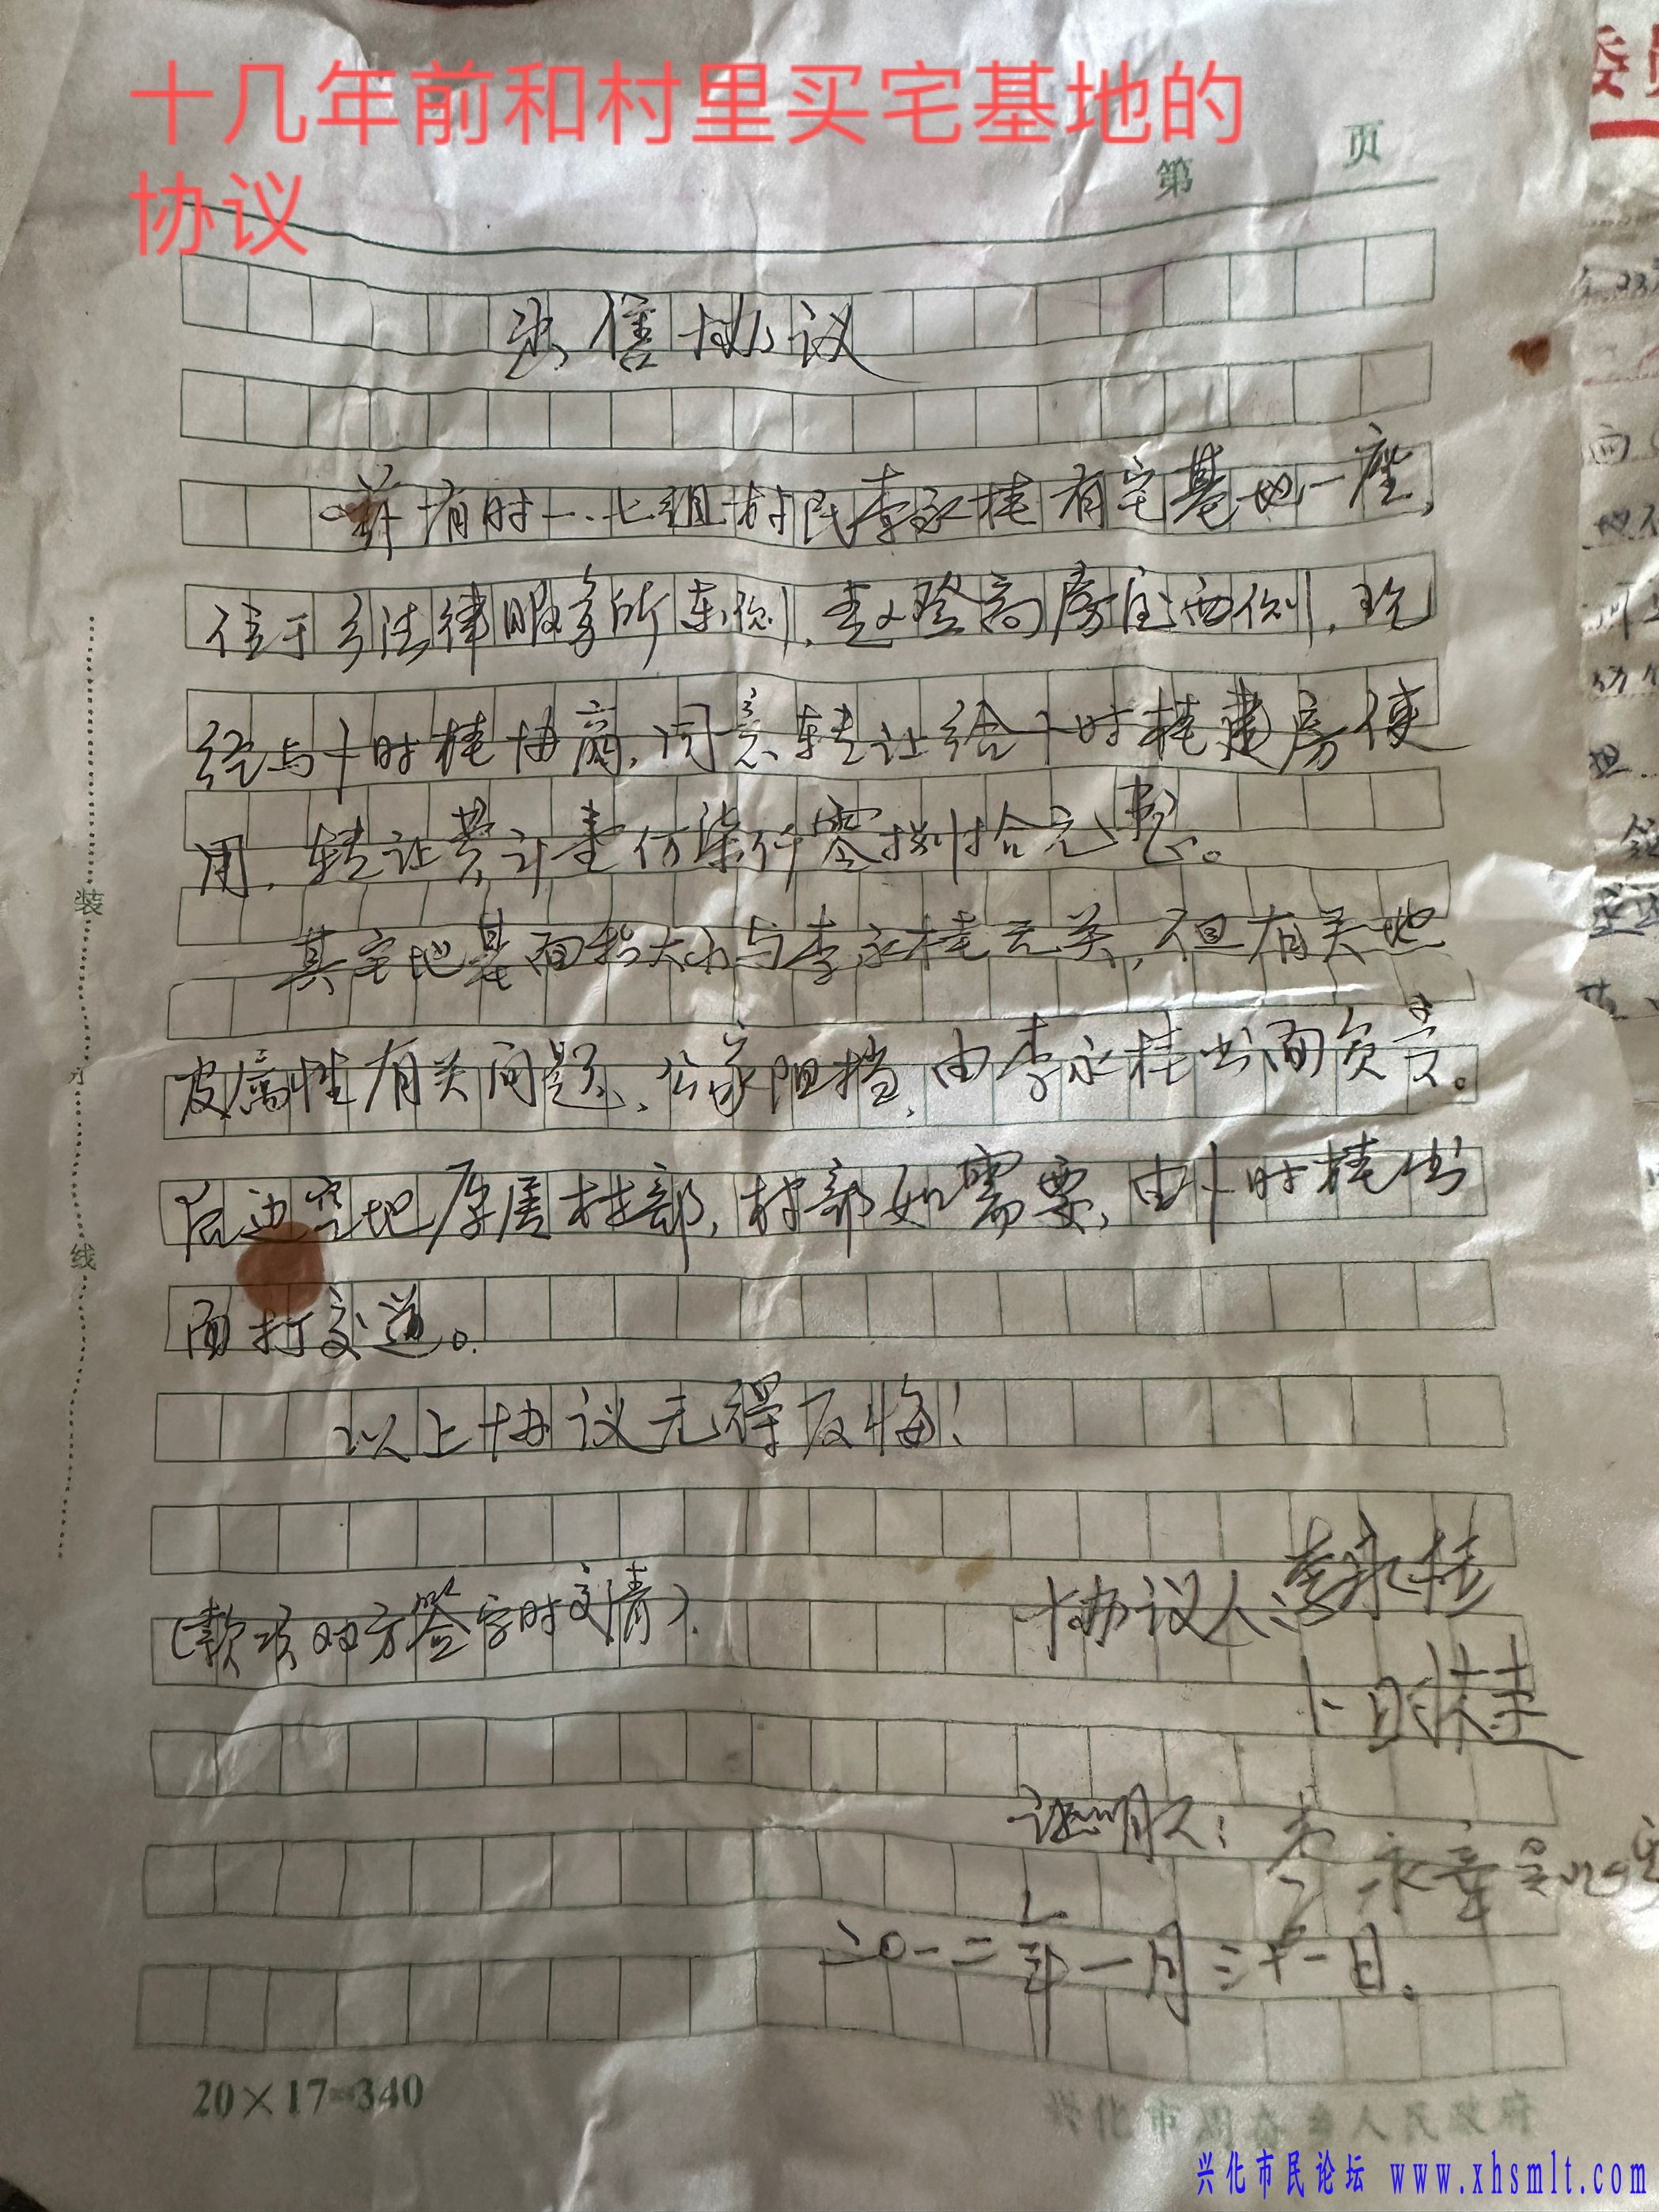 十几年前和村里买宅基地的
协议
第 页
出售协议
有时一.七组村民李永桂有宅基地一座,
位于乡法律服务所东侧,赵登高房屋西侧,现
经与卜时桂协商,同意转让给卜时桂建房使
用,转让费计壹万柒仟零捌拾元整。
其宅地基面积大小与李永桂无关,但有关地
皮属性有关问题、公家阻挡,由李永桂出面负责。
后边空地原属村部,村部如需要,由卜时桂出
面打交道。
以上协议无得反悔!
(款项双方签字时交清).
协议人:李永桂
卜时桂
证明人:
二0一二年一月三十一日。
装
线
20×17=340
兴化市民论坛 www.xhsmlt.com